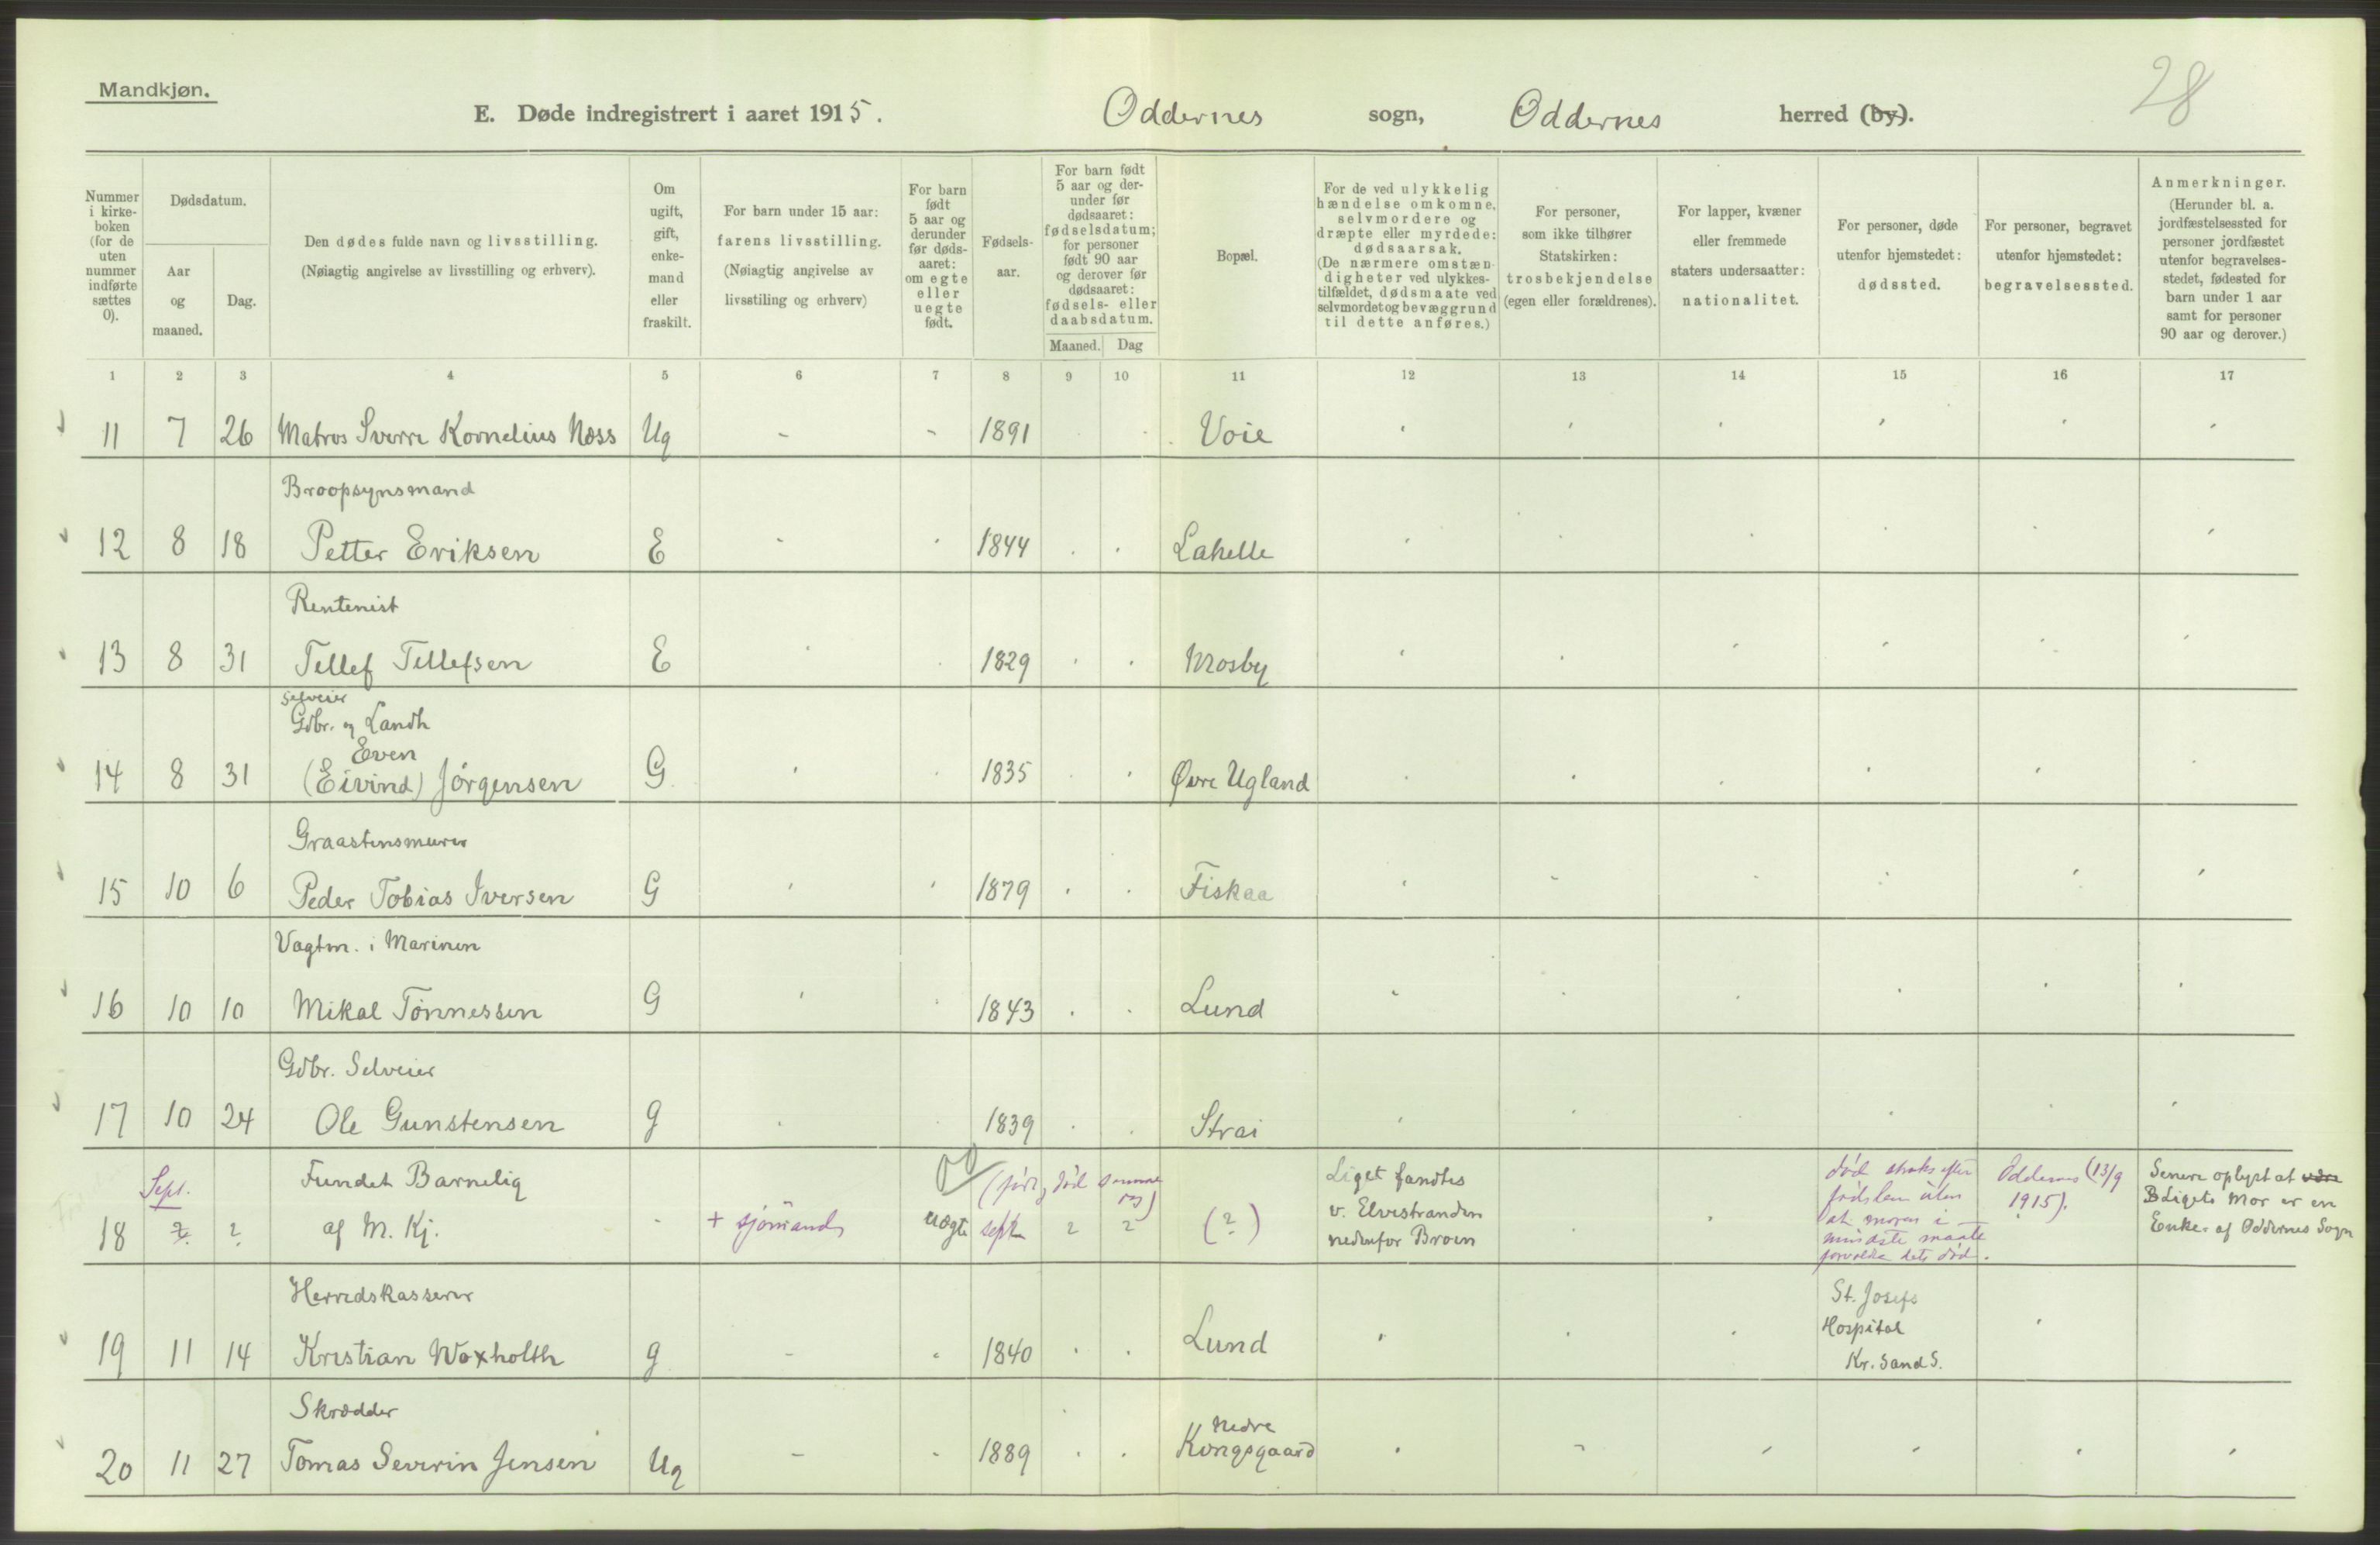 Mandkjøn.
28
E. Døde indregistrert i aaret 1915. Oddernes sogn, Oddernes herred (by).
Nummer i kirke-boken (for de uten nummer indførte sættes 0).
Dødsdatum.
Aar og maaned.
Dag.
Den dødes fulde navn og livsstilling.
(Nøiagtig angivelse av livsstilling og erhverv).
Om ugift, gift, enke-mand eller fraskilt.
For barn under 15 aar: farens livsstilling.
(Nøiagtig angivelse av livsstiling og erhverv)
For barn født 5 aar og derunder før døds-aaret: om egte eller uegte født.
Fødsels-aar.
For barn født 5 aar og der-under før dødsaaret: fødselsdatum; for personer født 90 aar og derover før dødsaaret: fødsels- eller daabsdatum.
Maaned. Dag
Bopæl.
For de ved ulykkelig hændelse omkomne, selvmordere og dræpte eller myrdede: dødsaarsak.
(De nærmere omstæn-digheter ved ulykkes-tilfældet, dødsmaate ved selvmordet og bevæggrund til dette anføres.)
For personer, som ikke tilhører Statskirken: trosbekjendelse (egen eller forældrenes).
For lapper, kvæner eller fremmede staters undersaatter: nationalitet.
For personer, døde utenfor hjemstedet: dødssted.
For personer, begravet utenfor hjemstedet: begravelsessted.
Anmerkninger.
(Herunder bl. a. jordfæstelsessted for personer jordfæstet utenfor begravelses-stedet, fødested for barn under 1 aar samt for personer 90 aar og derover.)
1 2 3 4 5 6 7 8 9 10 11 12 13 14 15 16 17
11 7 26 Matros Sverre Kornelius Næss Ug - - 1891 Voie
Broopsynsmand
12 8 18 Petter Eriksen E 1844 Lahelle
Rentenist
13 8 31 Tellef Tellefsen E 1829 Mosby
Selveier
Gdbr. og Landh
Even
14 8 31 (Eivind) Jörgensen G 1835 Øvre Ugland
Graastensmurer
15 10 6 Peder Tobias Iversen G 1879 Fiskaa
Vagtm. i Marinen
16 10 10 Mikal Tönnessen G 1843 Lund
Gdbr. Selveier
17 10 24 Ole Gunstensen g 1839 Strai
Sept.
Fundet Barnelig
18 ? ? af M. Kj. - + sjömands uægte sept. ? ? (?)
(född, död samme dag)
Liget fandtes
v. Elvestranden
nedenfor Broen
död straks efter
födslen uten
at moren i
mindste maate
forvoldte dets död.
Oddernes (13/9
1915).
Senere oplyst at være
Ligets Mor er en
Enke af Oddernes Sogn
Herredskasserer
19 11 14 Kristian Woxholth g - 1840 Lund
St. Josefs
Hospital
Kr.sand S.
Skrædder
20 11 27 Tomas Severin Jensen Ug - 1889
Nedre
Kongsgaard